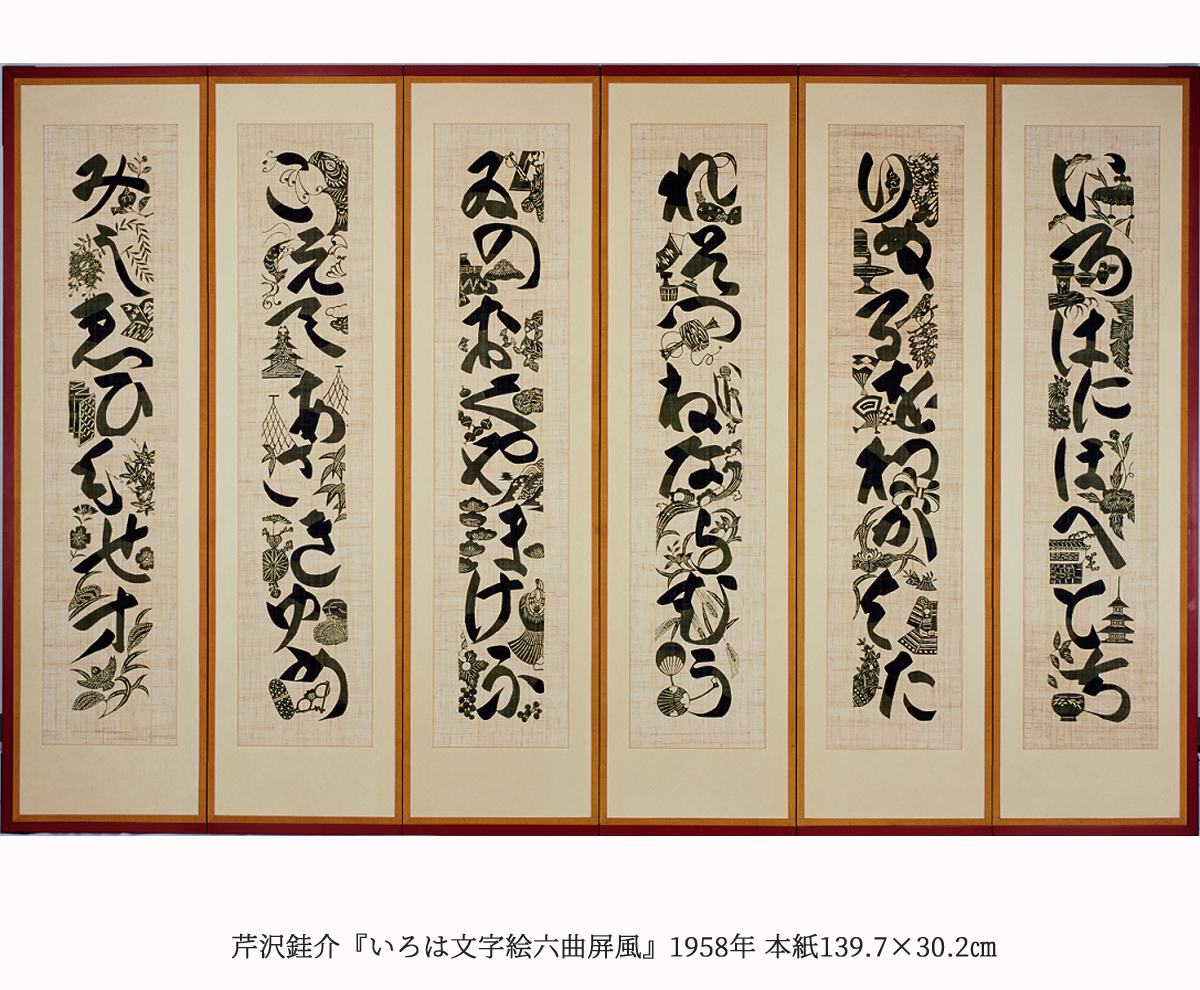 いろはにほへとち
りぬるをわかよた
れそつねならむう
ゐのおくやまけふ
こえてあさきゆめ
みしゑひもせす
芹沢銈介『いろは文字絵六曲屏風』1958年 本紙139.7×30.2㎝